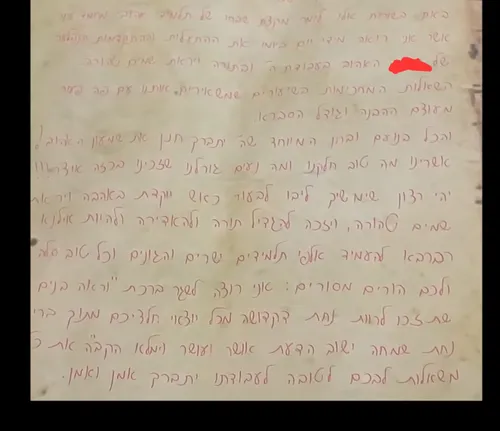 באתי בשורות אלו לומר מקצת שבחו של תלמיד
אשר אני רואה מידי יום ביומו את ההתעלות וההתקדמות
של האהוב בעבודת ה' ובתורה ויראת שמים טהורה
השאלות המחכימות השיעורים שמשאירים אותנו עם פה פעור
מעוצם ההבנה וגודל הסברא.
והכל בנועם ובחן המיוחד שה' יתברך חנן את שמעון האהוב!
אשרינו מה טוב חלקנו ומה נעים גורלנו שזכינו בכזה
יהי רצון שימשיך ליבו לבעור כאש יוקדת באהבה ויראת
שמים טהורה, ויזכה להגדיל תורה ולהאדירה ולהיות אילנא
רברבא להעמיד אלפי תלמידים ישרים והגונים וכל טוב סלה
ולכם הורים מסורים: אני רוצה לשגר ברכת "וראה בנים
שתזכו לרוות נחת דקדושה מכל יוצאי חלציכם מתוך בריאות
נחת שמחה ישוב הדעת אושר ועושר וימלא הקב"ה את כל
משאלות לבכם לטובה לעבודתו יתברך אמן ואמן.